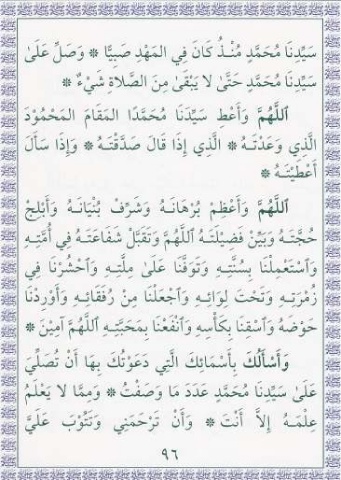 سَيِّدِنَا مُحَمَّدٍ مُنْذُ كَانَ فِي المَهْدِ صَبِيًّا ۞ وَصَلِّ عَلَىٰ
سَيِّدِنَا مُحَمَّدٍ حَتَّىٰ لَا يَبْقَىٰ مِنَ الصَّلَاةِ شَيْءٌ ۞
اَللَّهُمَّ وَأَعْطِ سَيِّدَنَا مُحَمَّدًا المَقَامَ المَحْمُودَ
الَّذِي وَعَدْتَهُ ۞ الَّذِي إِذَا قَالَ صَدَّقْتَهُ ۞ وَإِذَا سَأَلَ
أَعْطَيْتَهُ ۞
اَللَّهُمَّ وَأَعْظِمْ بُرْهَانَهُ وَشَرِّفْ بُنْيَانَهُ وَأَبْلِجْ
حُجَّتَهُ وَبَيِّنْ فَضِيلَتَهُ اَللَّهُمَّ وَتَقَبَّلْ شَفَاعَتَهُ فِي أُمَّتِهِ
وَٱسْتَعْمِلْنَا بِسُنَّتِهِ وَتَوَفَّنَا عَلَىٰ مِلَّتِهِ وَٱحْشُرْنَا فِي
زُمْرَتِهِ وَتَحْتَ لِوَائِهِ وَٱجْعَلْنَا مِنْ رُفَقَائِهِ وَأَوْرِدْنَا
حَوْضَهُ وَٱسْقِنَا بِكَأْسِهِ وَٱنْفَعْنَا بِمَحَبَّتِهِ اَللَّهُمَّ آمِيْنَ ۞
وَأَسْأَلُكَ بِأَسْمَائِكَ الَّتِي دَعَوْتُكَ بِهَا أَنْ تُصَلِّيَ
عَلَىٰ سَيِّدِنَا مُحَمَّدٍ عَدَدَ مَا وَصَفْتُ ۞ وَمِمَّا لَا يَعْلَمُ
عِلْمَهُ إِلَّا أَنْتَ ۞ وَأَنْ تَرْحَمَنِي وَتَتُوبَ عَلَيَّ
٩٦